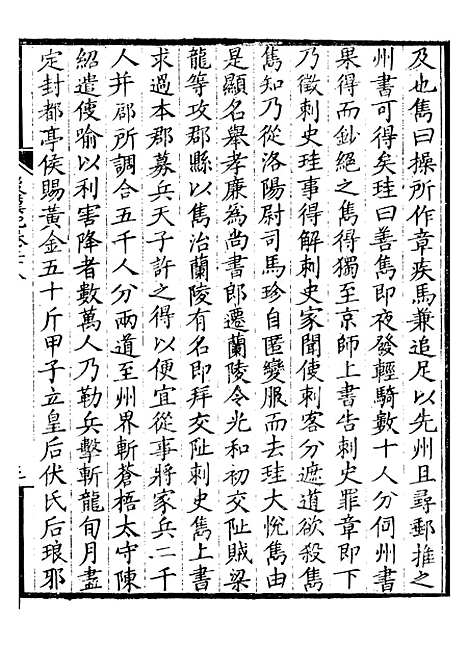 及也雋曰操所作章疾馬兼追足以先州且尋郵推之
州書可得矣珪曰善雋即夜發輕騎數十人分伺州書
果得而鈔絕之雋得獨至京師上書告刺史罪章即下
乃徵刺史珪事得解刺史家聞使刺客分遮道欲殺雋
雋知乃從洛陽尉司馬珍自匿變服而去珪大悅雋由
是顯名舉孝廉為尚書郎遷蘭陵令光和初交阯賊梁
龍等攻郡縣以雋治蘭陵有名即拜交阯刺史雋上書
求過本郡募兵天子許之得以便宜從事將家兵二千
人并郡所調合五千人分兩道至州界斬蒼梧太守陳
紹遣使喻以利害降者數萬人乃勒兵擊斬龍旬月盡
定封都亭侯賜黃金五十斤甲子立皇后伏氏后琅邪